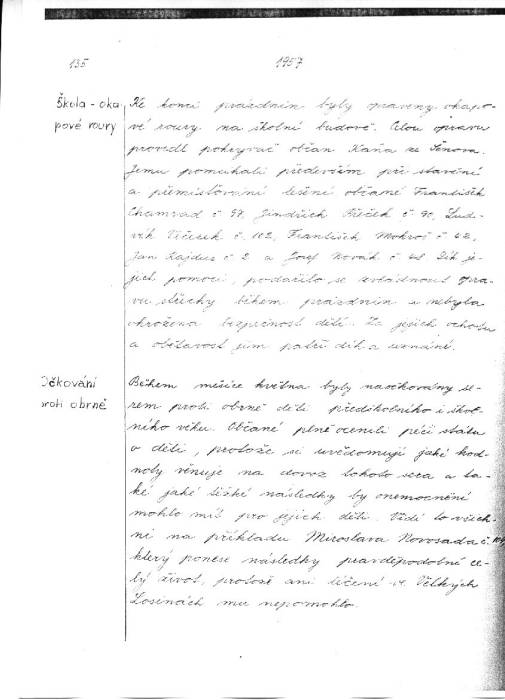 135
1957
Škola - oka
pové roury
Ke konci prázdnin byly opraveny okapo-
vé roury na školní budově. Celou opravu
provedl pokrývač občan Kaňa ze Šenova.
Jemu pomáhali především při stavění
a přemisťování lešení občané František
Chamrád č 97, Jindřich Píček č 90, Lud-
vík Vičísek č. 102, František Mokroš č 42,
Jan Kajdus č 2 a Josef Novák č 48. Dík je-
jich pomoci, podařilo se zvládnout opra-
vu střechy během prázdnin a nebyla
ohrožena bezpečnost dětí. Za jejich ochotu
a obětavost jim patří dík a uznání.
Očkování
proti obrně
Během měsíce května byly naočkovány se-
rem proti obrně děti předškolního i škol-
ního věku. Občané plně ocenili péči státu
o děti, protože si uvědomují jaké hod-
noty věnuje na dovoz tohoto sera a ta-
ké jaké těžké následky by onemocnění
mohlo mít pro jejich děti. Vidí to všich-
ni na příkladu Miroslava Novosada č.
který ponese následky pravděpodobně ce-
lý život, protože ani léčení ve Velkých
Losinách mu nepomohlo.